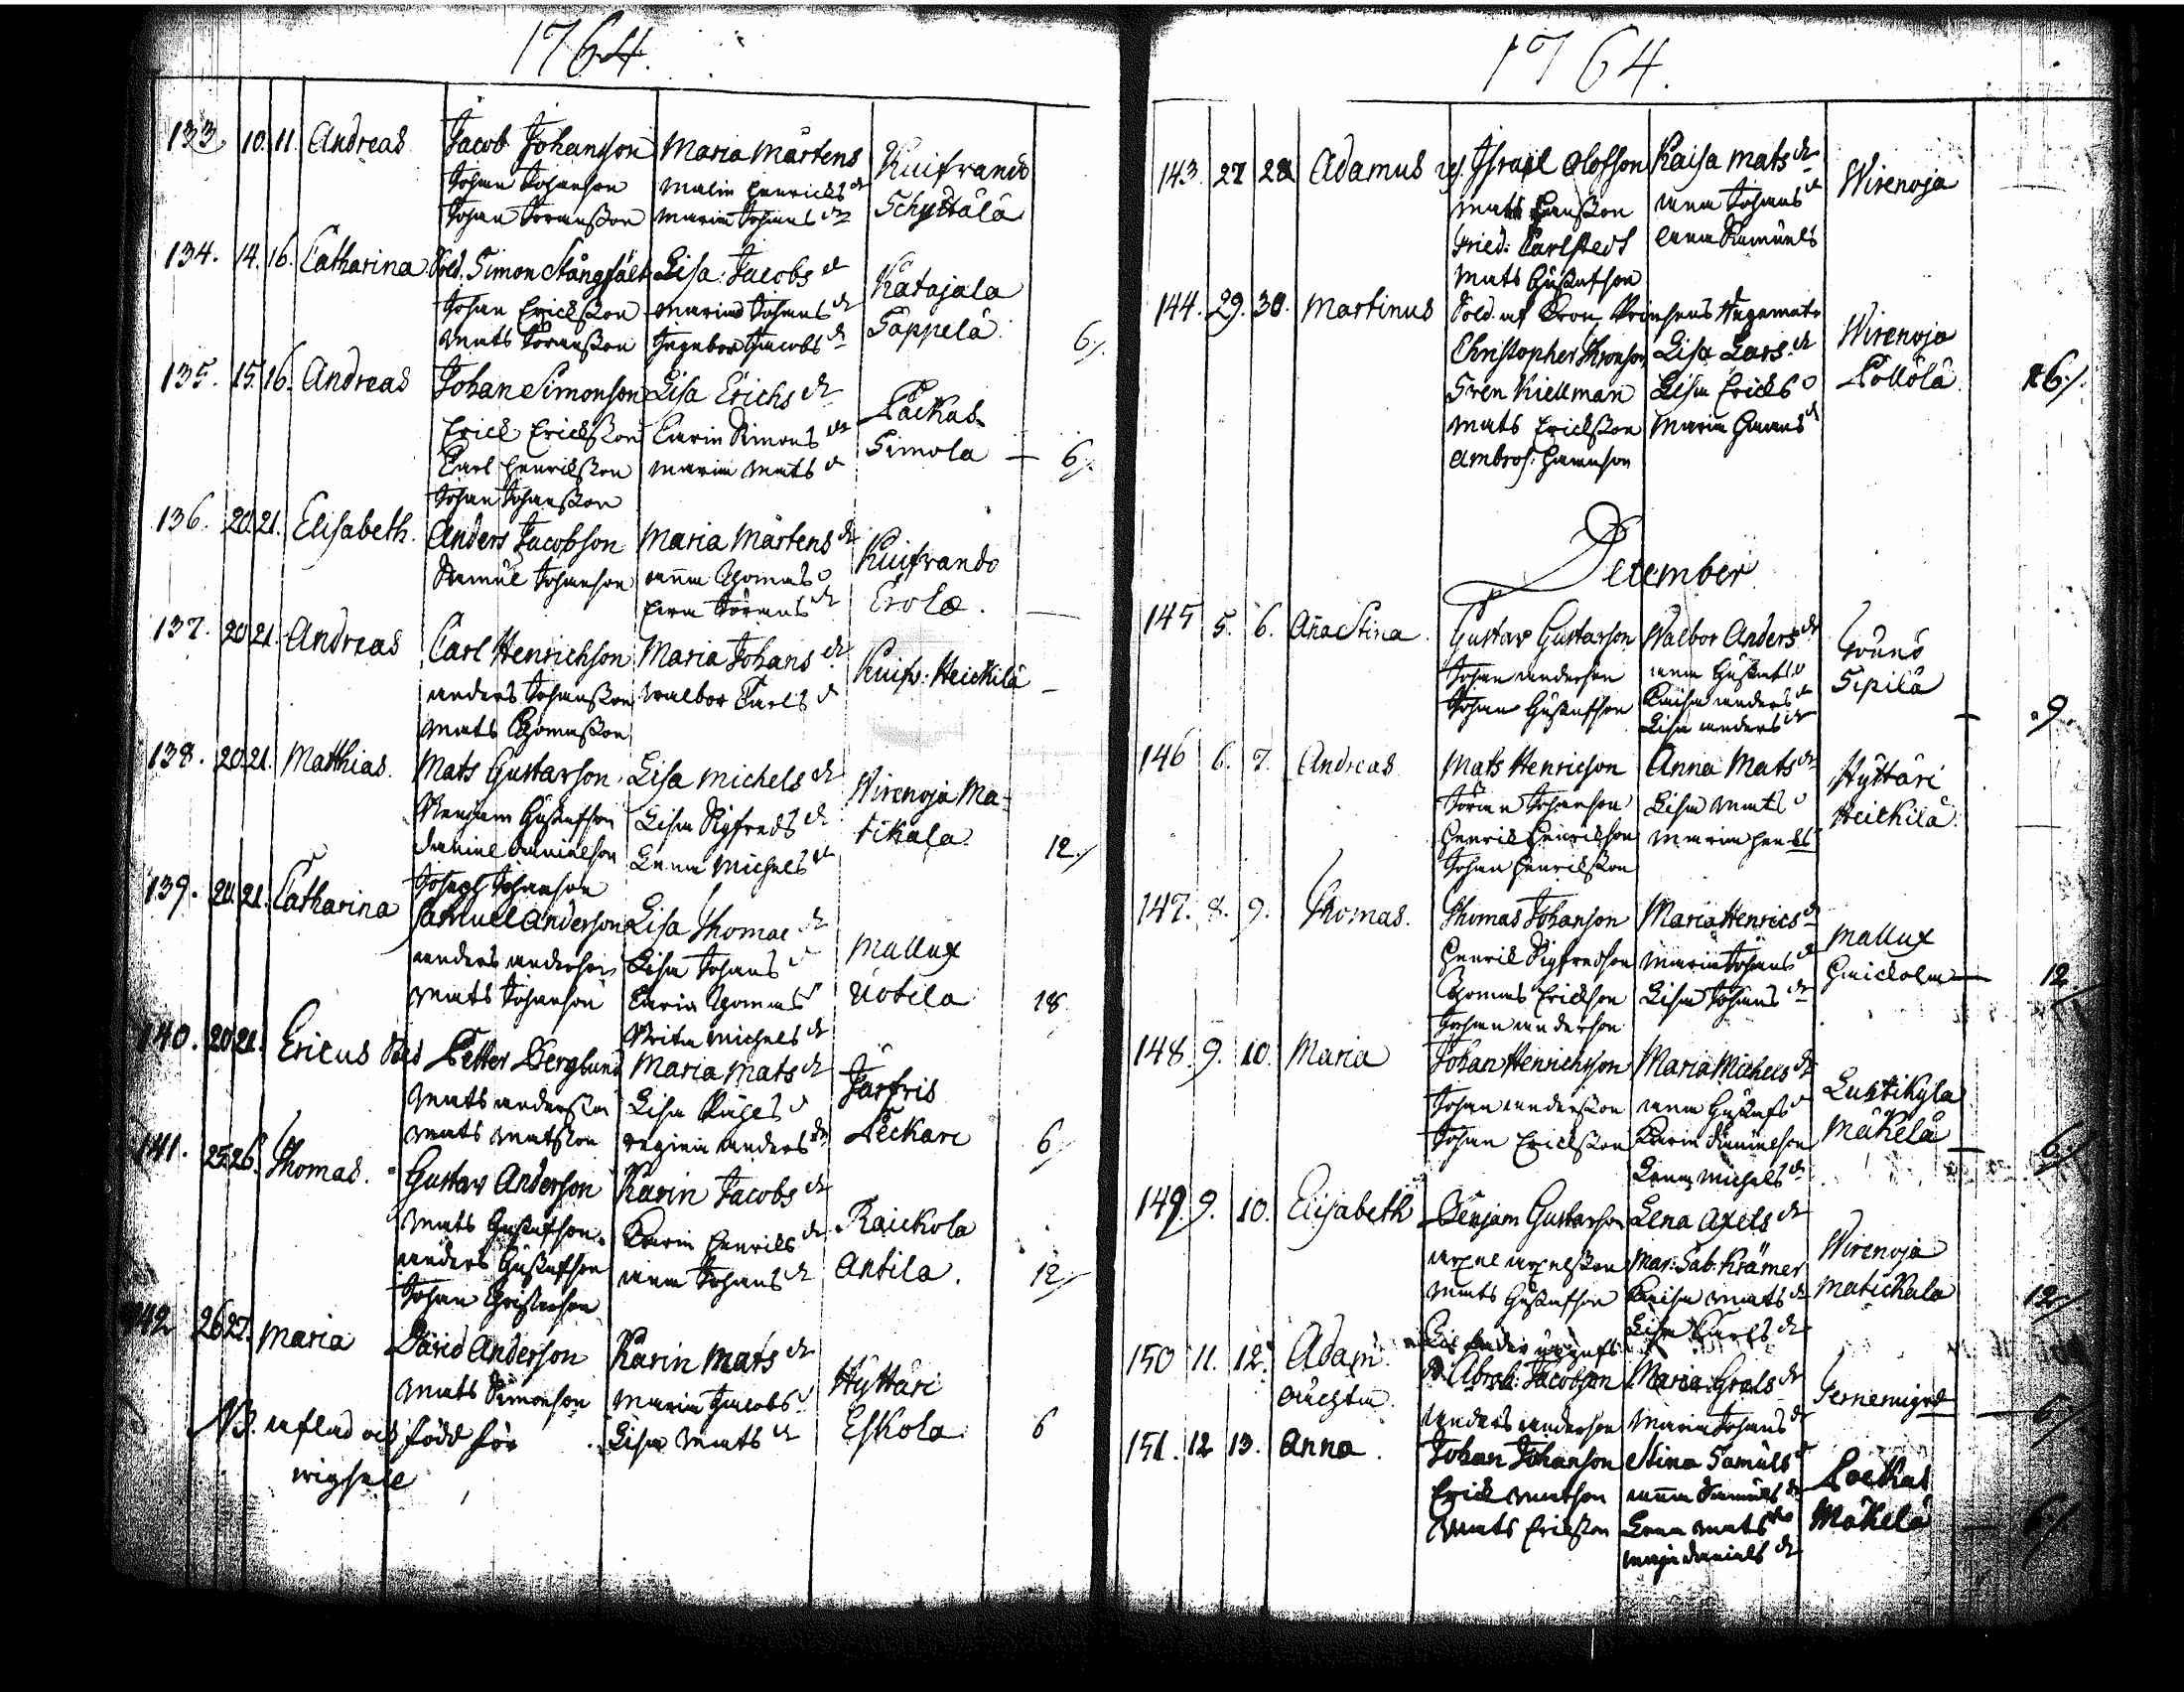 1764.
133. 10. 11. Andreas Jacob Johanson Maria Mårtens Kuifvando
Johan Johanson Malin Henricks dr Schyttälä
Johan Göransson Maria Johans dr
134. 14. 16. Catharina Sold. Simon Stångfält Lisa Jacobs dr Katajala
Johan Ericksson Maria Johans dr Säppelä 6/.
Mats Göransson Ingebor Jacobs dr
135. 15. 16. Andreas Johan Simonson Lisa Erichs dr Lackas
Erick Ericksson Carin Simons dr Simola 6/.
Carl Henricksson Maria Mats dr
Johan Johansson
136. 20. 21. Elisabeth. Anders Jacobson Maria Mårtens dr Kuifvando
Samuel Johanson Anna Thomas dr Erola.
Görans dr
137. 20. 21. Andreas Carl Henrichson Maria Johans dr Kuifv: Heickilä
Anders Johansson Walbor Carls dr
Mats Thomasson
138. 20. 21. Matthias. Mats Gustavson Lisa Michels dr Wirenoja Ma-
Benjam Gustafson Lisa Sigfreds dr tikala 12./
Daniel Danielson Lena Michels dr
Joseph Johanson
139. 20. 21. Catharina Samuel Anderson Lisa Thomae dr Mallux
Anders Anderson Lisa Johans dr Uotila 18
Mats Johanson Carin Thomas dr
Brita Michels dr
140. 20. 21. Ericus Sold Petter Berglund Maria Mats dr Järfris
Mats Andersson Lisa dr Leckari 6/
Mats Matsson Regina Anders dr
141. 25. 26. Thomas. Gustav Anderson Karin Jacobs dr Raickola
Mats Gustafson Karin Henricks dr Antila. 12/
Anders Gustafson Anna Johans dr
Johan Christerson
142 26 27. Maria David Anderson Karin Mats dr Hyttäri
Mats Simonson Maria Jacobs dr Eskola 6
NB. aflad och född för Lisa Mats dr
wigsele
1764.
143. 27 28 Adamus Israel Olofson Kaisa Mats dr Wirenoja
Mats Hansson Anna Johans dr
Fried: Carlstedt Anna Samuels
Mats Gustafson
144. 29. 30. Martinus Sold. af Cron Prinsens Regemate Wirenoja
Christopher Thronson Lisa Lars dr Pollola 6./.
Sven Kiellman Lisa Ericks dr
Mats Ericksson Maria Hans dr
Ambros: Hanson
December
145 5. 6. Aña Stina Gustav Gustavson Walbor Anders dr Grunö
Johan Anderson Anna Gustafs dr Sipilä 9.
Johan Gustafson Kaisa Anders dr
Lisa Anders dr
146 6. 7. Andreas Mats Henricson Anna Mats dr Hyttäri
Göran Johanson Lisa Mats dr Heickilä
Henrick Henrickson Maria Henrics
Johan Henricksson
147. 8. 9. Thomas. Thomas Johanson Maria Henrics dr Mallux
Henrick Sigfredson Maria Johans dr 12
Thomas Erickson Lisa Johans dr
Johan Anderson
148. 9. 10. Maria Johan Henrichson Maria Michels dr Lustikyla
Johan Andersson Anna Gustafs dr Mäkelä 6/
Johan Ericksson Karin Danielson
Lena Michels dr
149. 9. 10. Elisabeth Benjam Gustavson Lena Axels dr Wirenoja
Axel Axelsson Mar: Sab: Krämer Matickala 12/
Mats Gustafson Kaisa Mats dr
Lisa Carls dr
150 11. 12. Adam Abrah: Jacobson Maria Grels dr 6/
oächta. Anders Anderson Maria Johans dr
151. 12 13. Anna. Johan Johanson Stina Samuls dr Lackas
Erick Matson Anna Samuels dr Mäkelä 6/.
Mats Ericksson Lena Mats dr
Maja Daniels dr